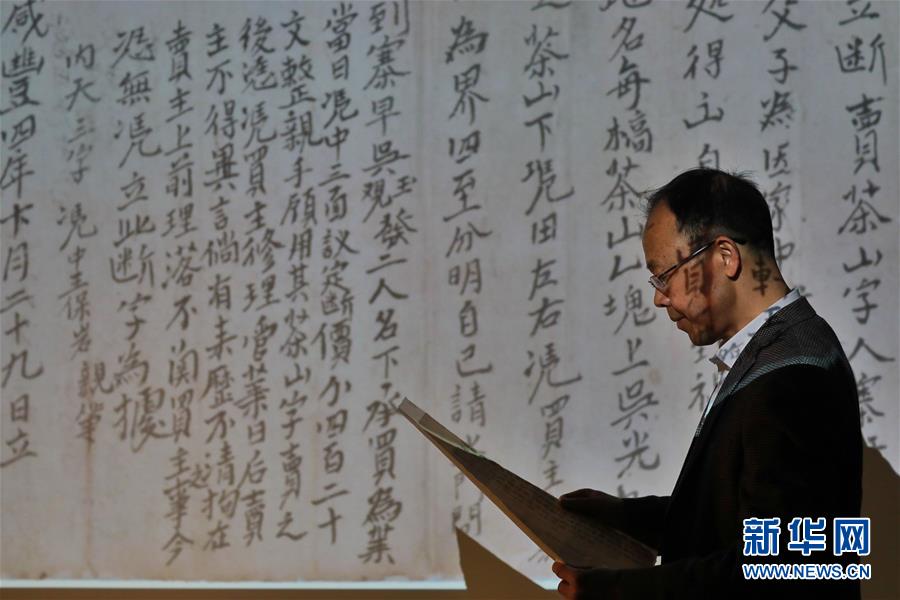 立断賣茶山字人寨
父子為因家中
处得
地名每槁茶山乙塊上吳光
茶山下凴田左右凴買主
為界四至分明自己請門問
到寨早吳观玉發二人名下承買為業
當日凴中三面議定断價小四百二十
文整親手願用其茶山字賣之
後凴買主修理管業日后賣
主不得異言倘有来歷不清拘在
賣主上前理落不関買主事今
恐無凴立此断字為據
内天三字 凴中圭保岩 親筆
咸豐四年十月二十九日立
新华网
WWW.NEWS.CN